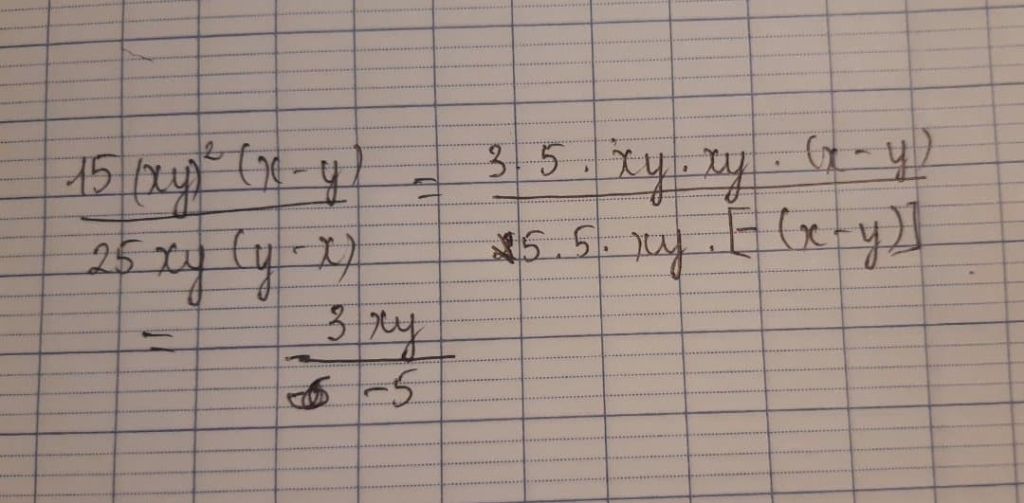 15 (xy)² (x - y) / 25 xy (y - x) = 3. 5 . xy . xy . (x - y) / 5. 5 . xy . [- (x - y)]
= 3 xy / -5